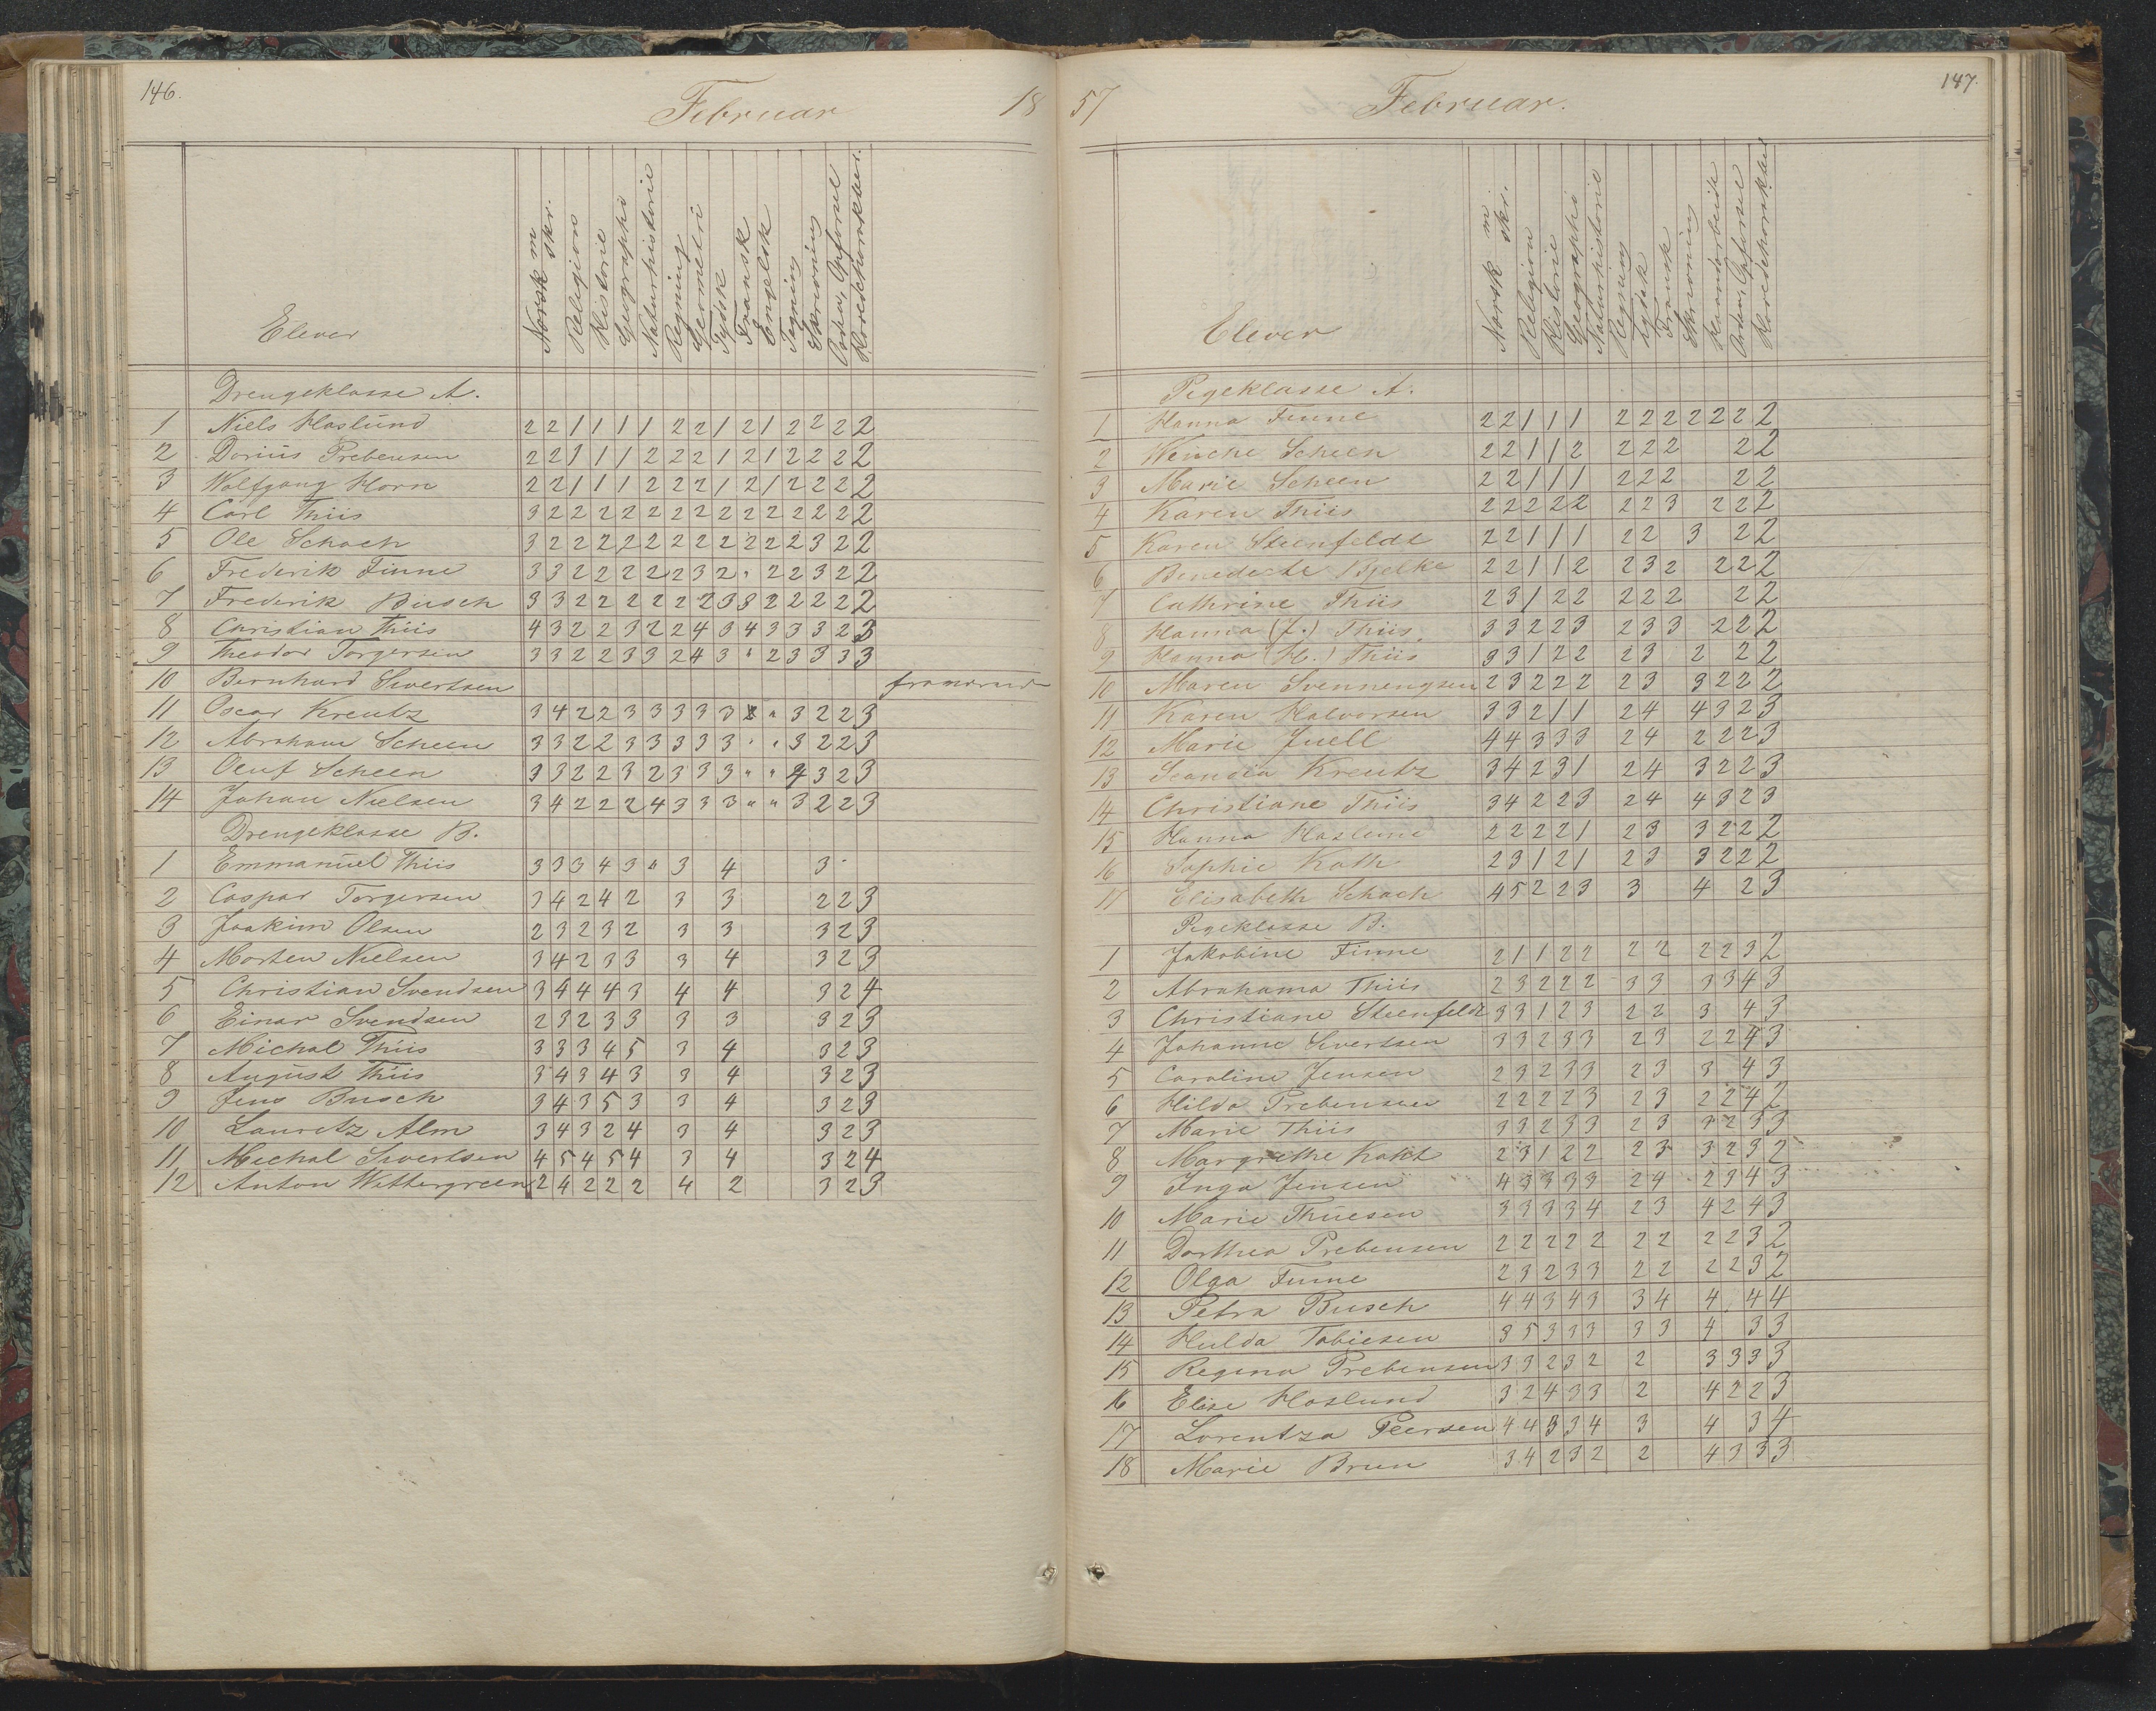 146.
Februar 18
Elever
Norsk m skr.
Religion
Historie
Geographi
Naturhistorie
Regning
Geometri
Tydsk
Fransk
Engelsk
Tegning
Skrivning
Orden, Opførsel
Hovedcharakter.
Drengeklasse A.
1 Niels Haslund 2 2 1 1 1 1 2 2 1 2 1 2 2 2 2
2 Darius Prebensen 2 2 1 1 1 2 2 2 1 2 1 2 2 2 2
3 Wolfgang Horn 2 2 1 1 1 2 2 2 1 2 1 2 2 2 2
4 Carl Thiis 3 2 2 2 2 2 2 2 2 2 2 2 2 2 2
5 Ole Schach 3 2 2 2 2 2 2 2 2 2 2 2 3 2 2
6 Frederik Finne 3 3 2 2 2 2 2 3 2 " 2 2 3 2 2
7 Frederik Busch 3 3 2 2 2 2 2 2 3 3 2 2 2 2 2
8 Christian Thiis 4 3 2 2 3 2 2 4 3 4 3 3 3 2 3
9 Theodor Torgersen 3 3 2 2 3 3 2 4 3 " 2 3 3 3 3
10 Bernhard Sivertsen fraværend
11 Oscar Kreutz 3 4 2 2 3 3 3 3 3 " 3 2 2 3
12 Abraham Scheen 3 3 2 2 3 3 3 3 3 " " 3 2 2 3
13 Oluf Scheen 3 3 2 2 3 2 3 3 3 " " 4 3 2 3
14 Johan Nielsen 3 4 2 2 2 4 3 3 3 " " 3 2 2 3
Drengeklasse B.
1 Emmanuel Thiis 3 3 3 4 3 " 3 4 3
2 Caspar Torgersen 3 4 2 4 2 3 3 2 2 3
3 Joakim Olsen 2 3 2 3 2 3 3 3 2 3
4 Morten Nielsen 3 4 2 3 3 3 4 3 2 3
5 Christian Svendsen 3 4 4 4 3 4 4 3 2 4
6 Einar Svendsen 2 3 2 3 3 3 3 3 2 3
7 Michal Thiis 3 3 3 4 5 3 4 3 2 3
8 August Thiis 3 4 3 4 3 3 4 3 2 3
9 Jens Busch 3 4 3 5 3 3 4 3 2 3
10 Lauretz Alm 3 4 3 2 4 3 4 3 2 3
11 Michal Sivertsen 4 5 4 5 4 3 4 3 2 4
12 Anton Wettergreen 2 4 2 2 2 4 2 3 2 3
147.
57 Februar.
Elever
Norsk m skr.
Religion
Historie
Geographi
Naturhistorie
Regning
Tydsk
Fransk
Skrivning
Haandarbeide
Orden, Opførsel
Hovedcharakter
Pigeklasse A.
1 Hanna Finne 2 2 1 1 1 2 2 2 2 2 2 2
2 Wenche Scheen 2 2 1 1 2 2 2 2 2 2
3 Marie Scheen 2 2 1 1 1 2 2 2 2 2
4 Karen Thiis 2 2 2 2 2 2 2 3 2 2 2
5 Karen Steenfeldt 2 2 1 1 1 2 2 3 2 2
6 Benedecte Bjelke 2 2 1 1 2 2 3 2 2 2 2
7 Cathrine Thiis 2 3 1 2 2 2 2 2 2 2
8 Hanna (J.) Thiis 3 3 2 2 3 2 3 3 2 2 2
9 Hanna (H.) Thiis 3 3 1 2 2 2 3 2 2 2
10 Maren Svennengsen 2 3 2 2 2 2 3 3 2 2 2
11 Karen Halvorsen 3 3 2 1 1 2 4 4 3 2 3
12 Marie Juell 4 4 3 3 3 2 4 2 2 2 3
13 Kreutz 3 4 2 3 1 2 4 3 2 2 3
14 Christiane Thiis 3 4 2 2 3 2 4 4 3 2 3
15 Hanna Haslund 2 2 2 2 1 2 3 3 2 2 2
16 Sophie Kath 2 3 1 2 1 2 3 3 2 2 2
17 Elisabeth Schach 4 5 2 2 3 3 4 2 3
Pigeklasse B.
1 Jakobine Finne 2 1 1 2 2 2 2 2 2 3 2
2 Abrahama Thiis 2 3 2 2 2 3 3 3 3 4 3
3 Christiane Steenfeldt 3 3 1 2 3 2 2 3 4 3
4 Johanne Sivertsen 3 3 2 3 3 2 3 2 2 4 3
5 Caroline Jensen 2 3 2 3 3 2 3 3 4 3
6 Hilda Prebensen 2 2 2 2 3 2 3 2 2 4 2
7 Marie Thiis 3 3 2 3 3 2 3 3 2 3 3
8 Margrethe Kaht 2 3 1 2 2 2 3 3 2 3 2
9 Inga Jensen 4 3 3 3 3 2 4 2 3 4 3
10 Marie Thuesen 3 3 3 3 4 2 3 4 2 4 3
11 Dorthea Prebensen 2 2 2 2 2 2 2 2 2 3 2
12 Olga Finne 2 3 2 3 3 2 2 2 2 3 2
13 Petra Busch 4 4 3 4 3 3 4 4 4 4
14 Hulda Tobiesen 3 5 3 3 3 3 3 4 3 3
15 Regina Prebensen 3 3 2 3 2 2 3 3 3 3
16 Elise Haslund 3 2 4 3 3 2 4 2 2 3
17 Lorentza Peersen 4 4 3 3 4 3 4 3 4
18 Marie Brun 3 4 2 3 2 2 4 3 3 3